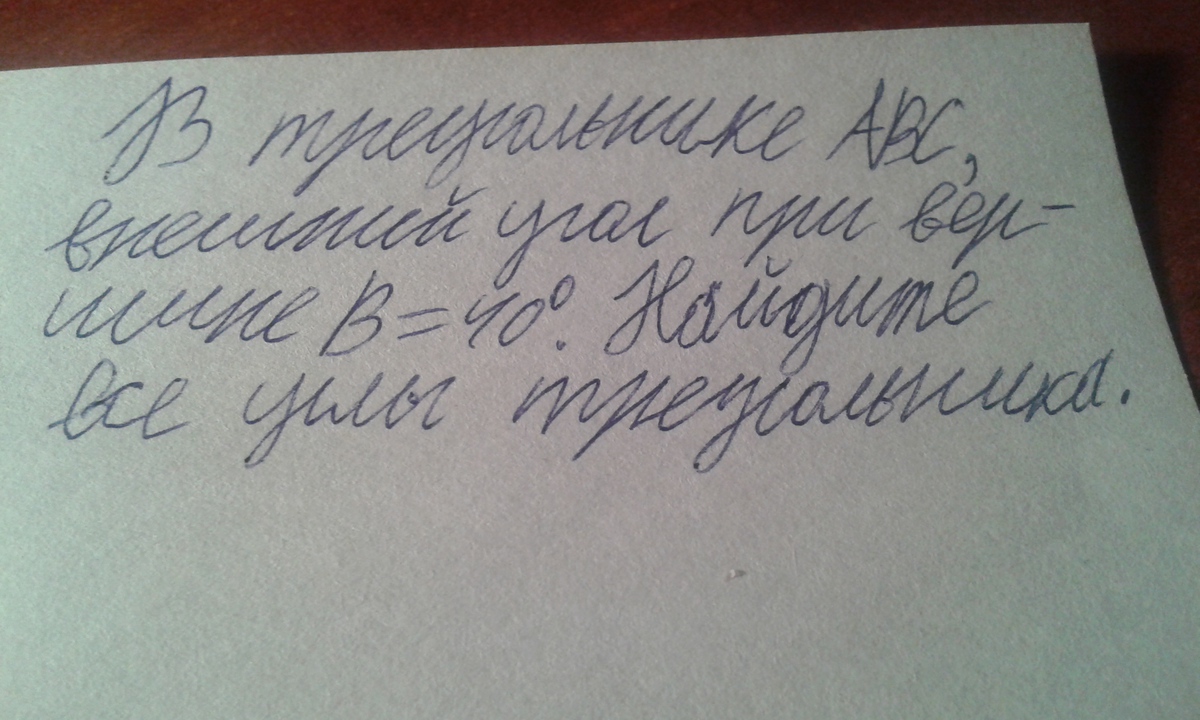 В треугольнике АВС,
внешний угол при вер-
шине В=40°. Найдите
все углы треугольника.